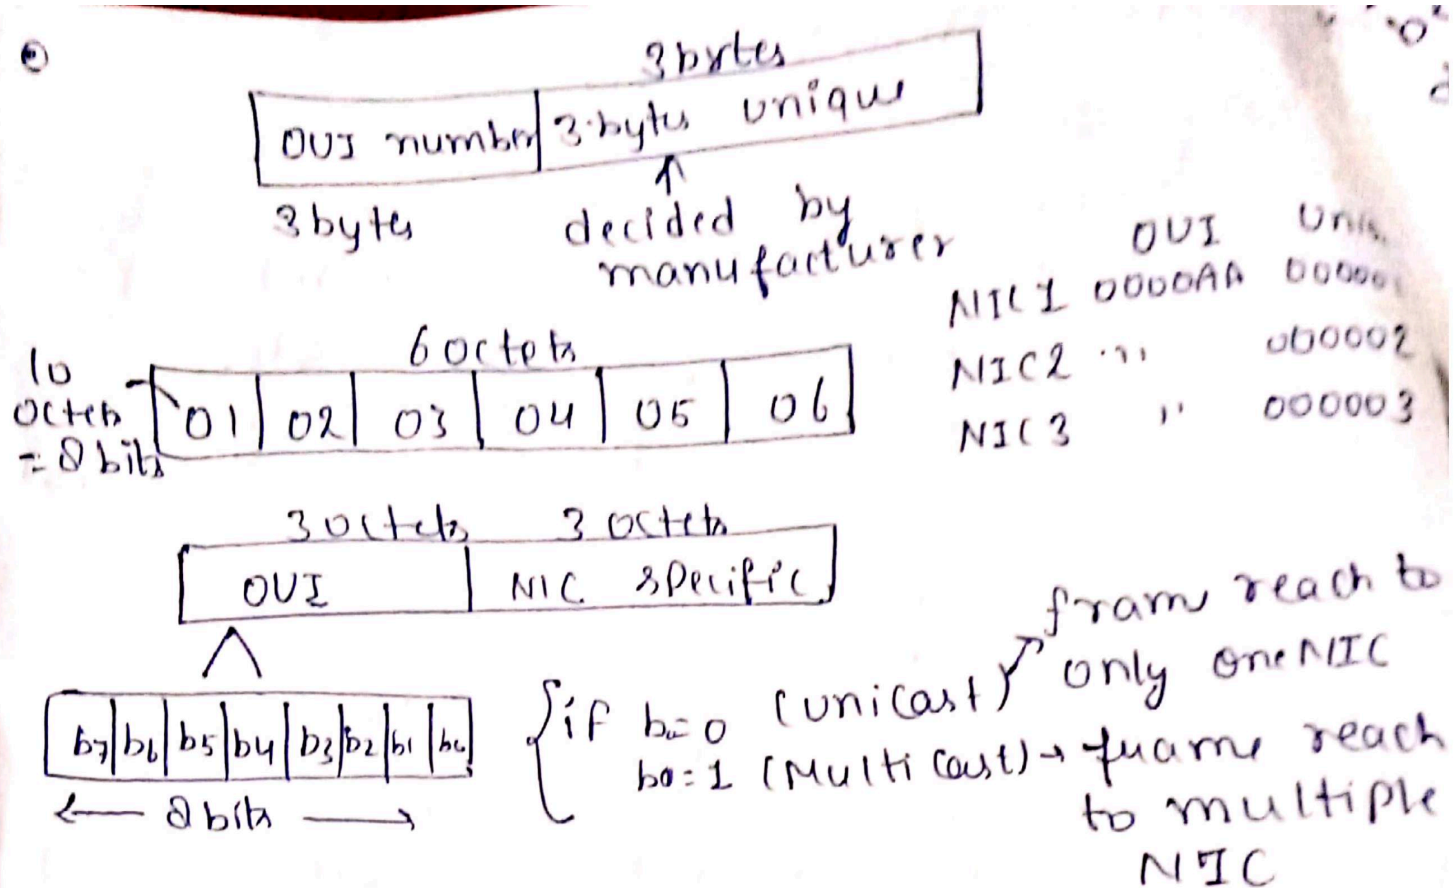 3 bytes
OUI number 3 bytes unique
3 bytes
decided by
manufacturer
OUI
NIC 1 0000AA
NIC2 " 000002
NIC 3 " 000003
6 octets
octets
= 8 bits
01 02 03 04 05 06
3 octets 3 octets
OUI NIC specific
b7 b6 b5 b4 b3 b2 b1 b0
8 bits
if b=0 (unicast) → fram reach to
only one NIC
b0=1 (Multi cast) → frame reach
to multiple
NIC